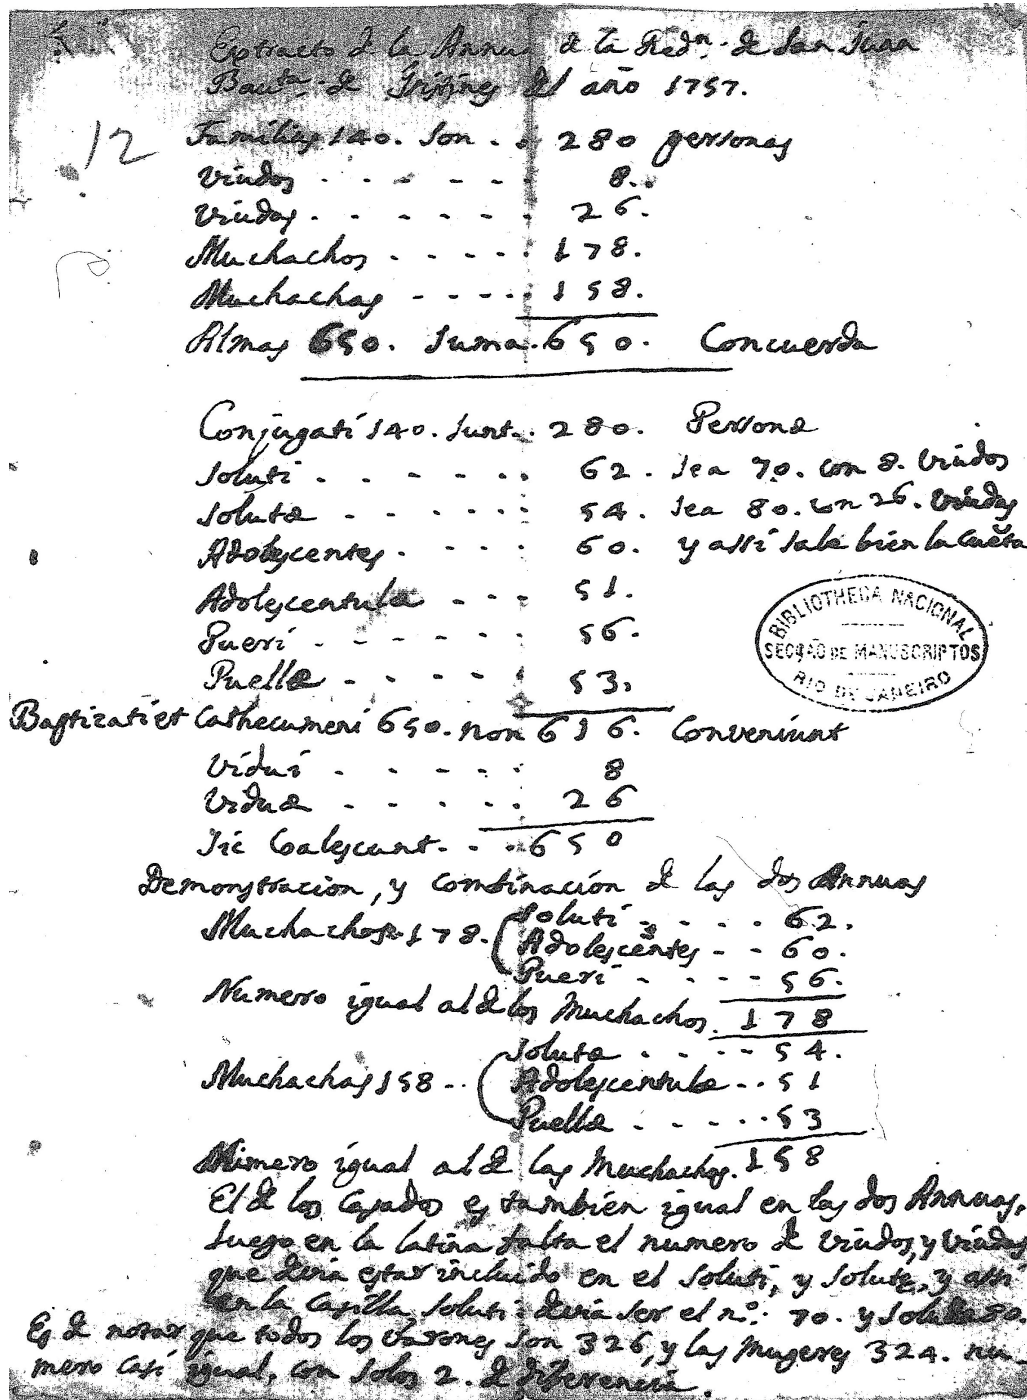 Extracto d la Annua d la Redn. de San Juan
Bauta. de Chiriny del año 1757.
12
Familias 140. Son . . 280 personas
Viudos . - - - - - 8.
Viudas . - - - - . 26.
Muchachos - - - - . 178.
Muchachas - - - - . 158.
Almas 650. Suma. 650. Concuerda
Conjugati 140. Sunt . . 280. Personæ
Soluti . - - - - . . 62. Sea 70. con 8. Viudos
Solutæ - - - - - . . 54. Sea 80. con 26. Viudas
Adolescentes . - - - . 60. y assi sale bien la Cuẽta
Adolescentulæ - - - 51.
Pueri - - - - - . 56.
Puellæ - - - - . 53.
Baptizati et Cathecumeni 650. non 616. Conveniunt
Vidui . - - - - . 8
Viduæ . - - - . . 26
Sic Coalescunt - . . 650
BIBLIOTHECA NACIONAL
SECÇÃO DE MANUSCRIPTOS
RIO DE JANEIRO
Demonstracion, y combinacion d las dos Annuas
Soluti . . . . 62.
Muchachos 178. Adolescentes - - 60.
Pueri - - - - 56.
Numero igual al d los Muchachos. 178
Solutæ . . - - - 54.
Muchachas 158 - . Adolescentulæ - . . 51
Puellæ - - - . . . 53
Numero igual al d las Muchachas. 158
El de los Casados es tambien igual en las dos Annuas,
Luego en la latina falta el numero d Viudos, y Viudas
que devia estar incluido en el Soluti, y Solute, y assi
en la Casilla Soluti devia ser el no: 70. y Solutæ 80.
Es d notar que todos los Varones son 326, y las Mugeres 324. nu-
mero casi igual, con solos 2. d diferencia.